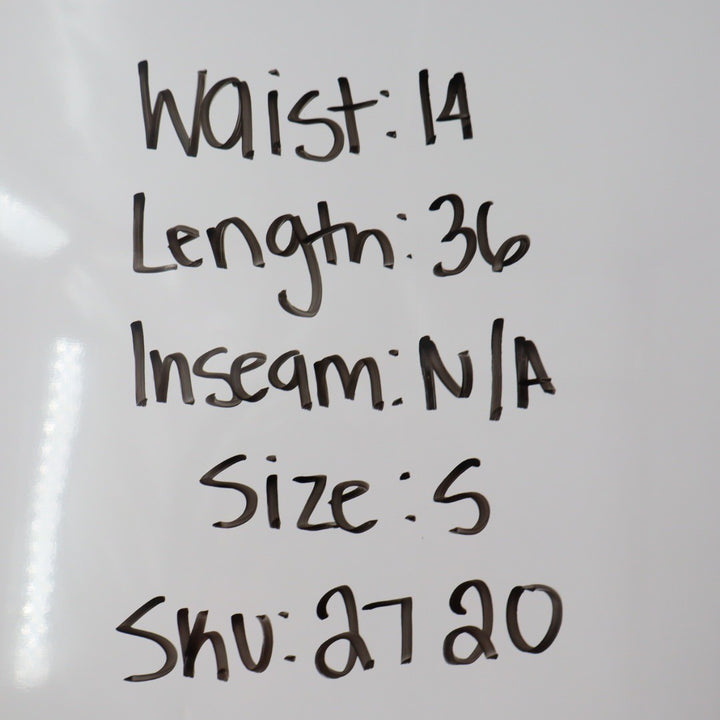 Waist: 14
Length: 36
Inseam: N/A
Size: S
SKU: 2720